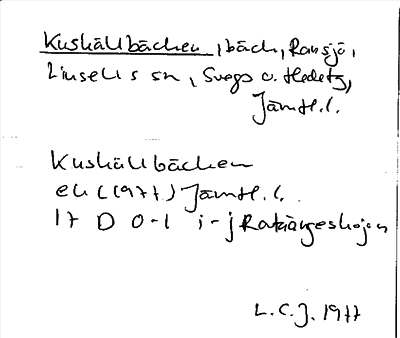 Kuskällbäcken, bäck, Ransjö,
Linsells sn, Svegs o. Hede tg,
Jämtl. l.
Kuskällbäcken
ek (1977) Jämtl. l.
17 D 0-1 i-j
L.C.J. 1977